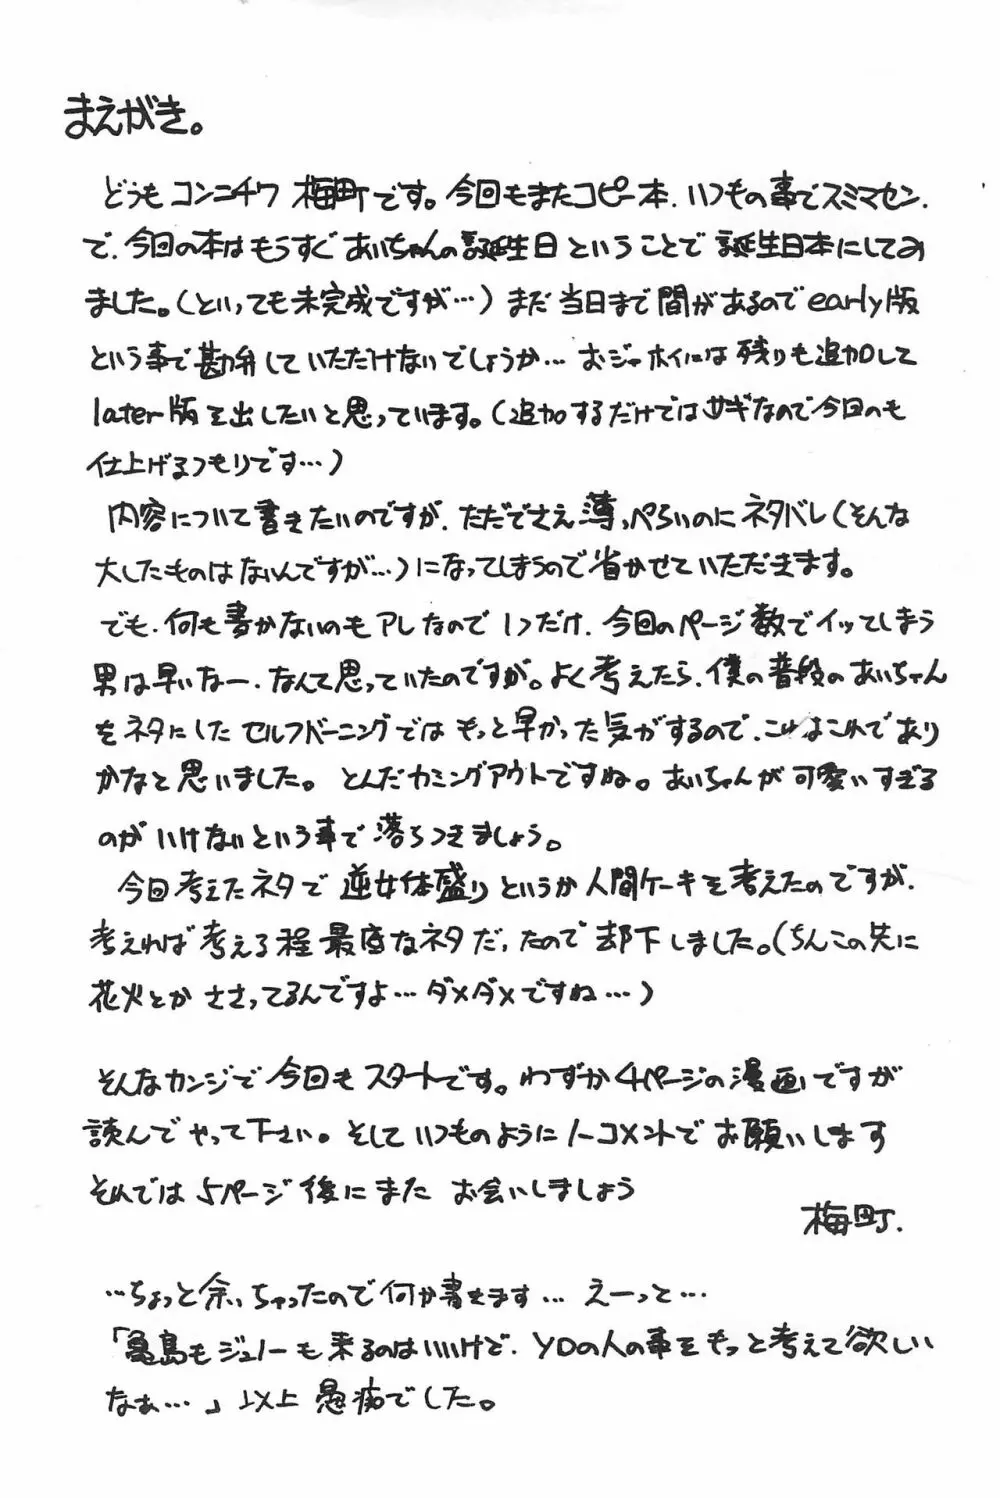 まえがき。
どうもコンニチワ梅町です。今回もまたコピー本、いつもの事でスミマセン、
で、今回の本はもうすぐあいちゃんの誕生日ということで誕生日本にしてみ
ました。（といっても未完成ですが…）まだ当日まで間があるのでearly版
という事で勘弁していただけないでしょうか… おジャホイには残りも追加して
later版を出したいと思っています。（追加するだけではサギなので今回のも
仕上げるつもりです…）
内容について書きたいのですが、ただでさえ薄っぺらいのにネタバレ（そんな
大したものはないんですが…）になってしまうので省かせていただきます。
でも、何も書かないのもアレなので1つだけ、今回のページ数でイッてしまう
男は早いなー、なんて思っていたのですが。よく考えたら、僕の普段のあいちゃん
をネタにしたセルフバーニングではもっと早かった気がするので、これはこれであり
かなと思いました。とんだカミングアウトですね。あいちゃんが可愛いすぎる
のがいけないという事で落ちつきましょう。
今回考えたネタで逆女体盛りというか人間ケーキを考えたのですが、
考えれば考える程最低なネタだったので却下しました。（ちんこの先に
花火とかささってるんですよ…ダメダメですね…）
そんなカンジで今回もスタートです。わずか4ページの漫画ですが
読んでやって下さい。そしていつものようにノーコメントでお願いします
それでは5ページ後にまたお会いしましょう
梅町.
…ちょっと余っちゃったので何か書きます…えーっと…
「亀島もジュノーも来るのはいいけど、YDの人の事をもっと考えて欲しい
なぁ…」以上愚痴でした。